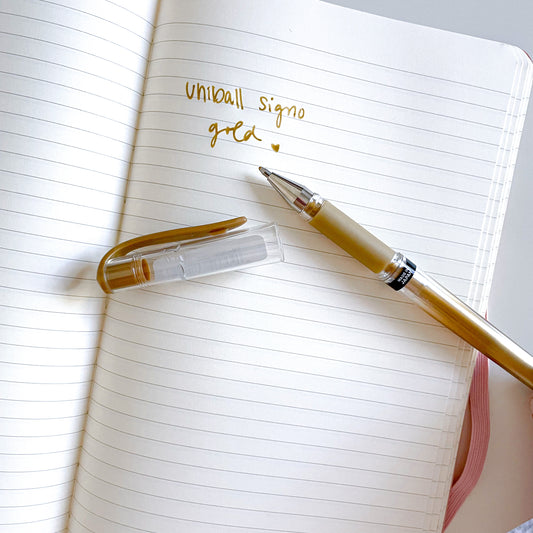 uniball signo
gold